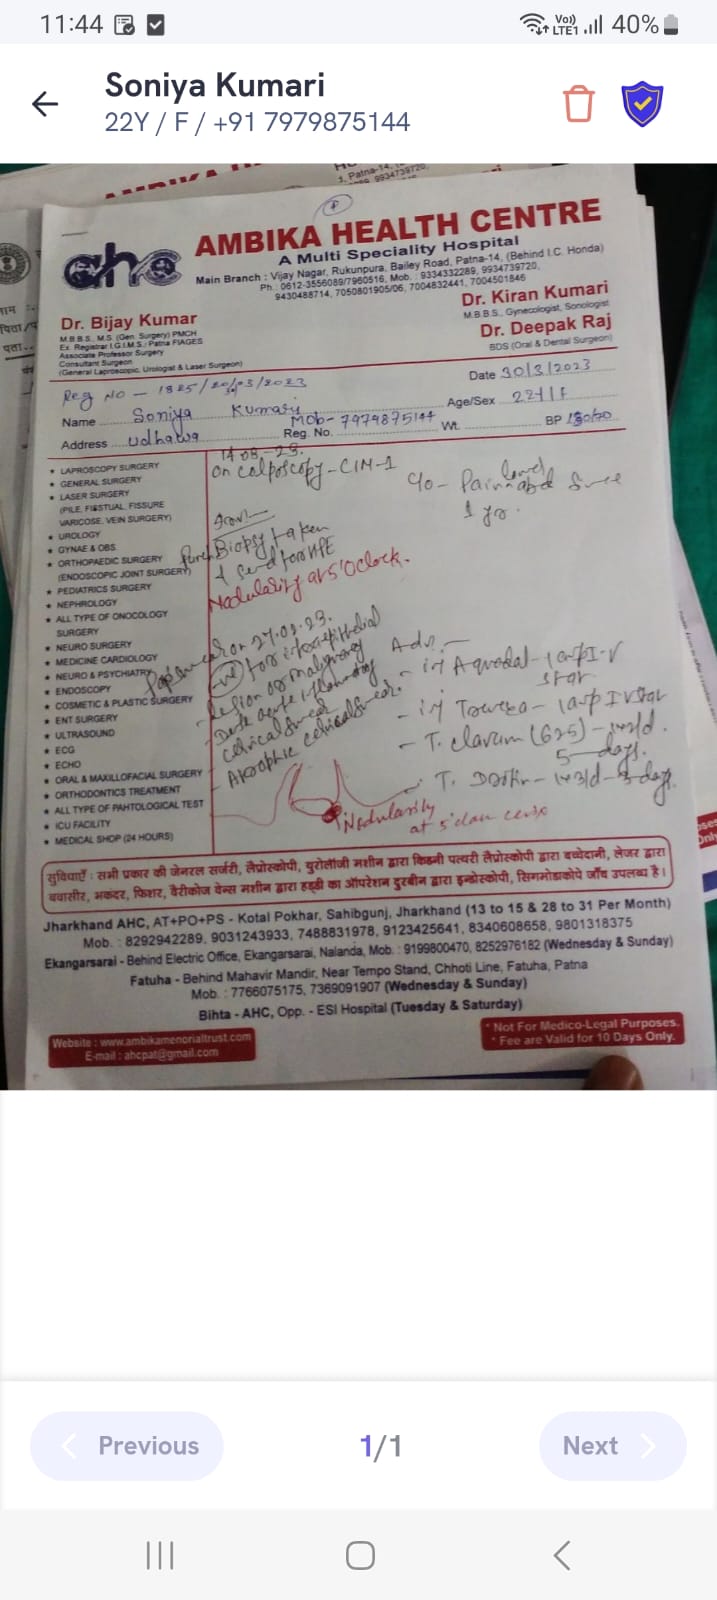 11:44
Vo))
LTE1
40%
Soniya Kumari
22Y / F / +91 7979875144
AMBIKA HEALTH CENTRE
A Multi Speciality Hospital
Main Branch : Vijay Nagar, Rukunpura, Bailey Road, Patna-14, (Behind I.C. Honda)
Ph.: 0612-3556089/7960516, Mob. : 9334332289, 9934739720,
9430488714, 7050801905/06, 7004832441, 7004501846
Dr. Bijay Kumar
M.B.B.S., M.S. (Gen. Surgery) PMCH
Ex. Registrar I.G.I.M.S.- Patna FIAGES
Associate Professor Surgery
Consultant Surgeon
(General Laproscopic, Urologist & Laser Surgeon)
Dr. Kiran Kumari
M.B.B.S., Gynecologist, Sonologist
Dr. Deepak Raj
BDS (Oral & Dental Surgeon)
Reg NO - 1825/20/03/2023
Date 30/3/2023
Name Soniya Kumari
Age/Sex 22Y/F
Mob- 7979875144
Address Udhalwa
Reg. No.
Wt.
BP 130/70
LAPROSCOPY SURGERY
GENERAL SURGERY
LASER SURGERY
(PILE, FISSTUAL, FISSURE
VARICOSE, VEIN SURGERY)
UROLOGY
GYNAE & OBS
ORTHOPAEDIC SURGERY
(ENDOSCOPIC JOINT SURGERY)
PEDIATRICS SURGERY
NEPHROLOGY
ALL TYPE OF ONOCOLOGY
SURGERY
NEURO SURGERY
MEDICINE CARDIOLOGY
NEURO & PSYCHIATRY
ENDOSCOPY
COSMETIC & PLASTIC SURGERY
ENT SURGERY
ULTRASOUND
ECG
ECHO
ORAL & MAXILLOFACIAL SURGERY
ORTHODONTICS TREATMENT
ALL TYPE OF PAHTOLOGICAL TEST
ICU FACILITY
MEDICAL SHOP (24 HOURS)
on colposcopy - CIN-1
C/o - Pain lower abd since
1 yr.
Punch Biopsy taken
& send for HPE
Nodularity at 5'Oclock.
Pap smear on 27.02.23.
-ve for intraepithelial
Lesion or malignancy
acute inflammatory
cervical smear
Atrophic cervical smear.
Adv. -
T. Clavum (625) -
5 days.
Nodularity
at 5'
सुविधाएँ : सभी प्रकार की जेनरल सर्जरी, लैप्रोस्कोपी, युरोलॉजी मशीन द्वारा किडनी पत्थरी लैप्रोस्कोपी द्वारा बच्चेदानी, लेजर द्वारा
बवासीर, भकदर, फिशर, वैरीकोज वेन्स मशीन द्वारा हड्डी का ऑपरेशन दुरबीन द्वारा इन्डोस्कोपी, सिगमोडाकोपे जाँच उपलब्ध है।
Jharkhand AHC, AT+PO+PS - Kotal Pokhar, Sahibgunj, Jharkhand (13 to 15 & 28 to 31 Per Month)
Mob. : 8292942289, 9031243933, 7488831978, 9123425641, 8340608658, 9801318375
Ekangarsarai - Behind Electric Office, Ekangarsarai, Nalanda, Mob. : 9199800470, 8252976182 (Wednesday & Sunday)
Fatuha - Behind Mahavir Mandir, Near Tempo Stand, Chhoti Line, Fatuha, Patna
Mob. : 7766075175, 7369091907 (Wednesday & Sunday)
Bihta - AHC, Opp. - ESI Hospital (Tuesday & Saturday)
Website : www.ambikamenorialtrust.com
E-mail : ahcpat@gmail.com
* Not For Medico-Legal Purposes.
* Fee are Valid for 10 Days Only.
Previous
1/1
Next